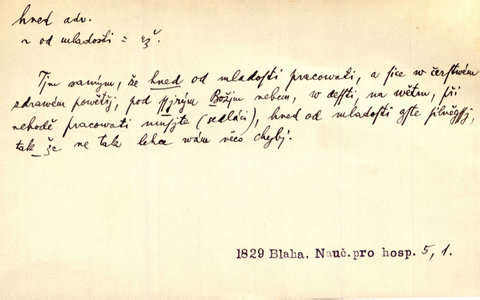 hned adv.
~ od mladosti = zř.
Tjm samým, že hned od mladosti pracowati, a sice w čerstwém
zdrawém powětřj, pod ssjrým Božjm nebem, w dessti, na wětru, při
nehodě pracowati musyte (sedláci), hned od mladosti gste silněgssj,
tak že ne tak lehce wám něco chybj.
1829 Blaha. Nauč.pro hosp. 5, 1.